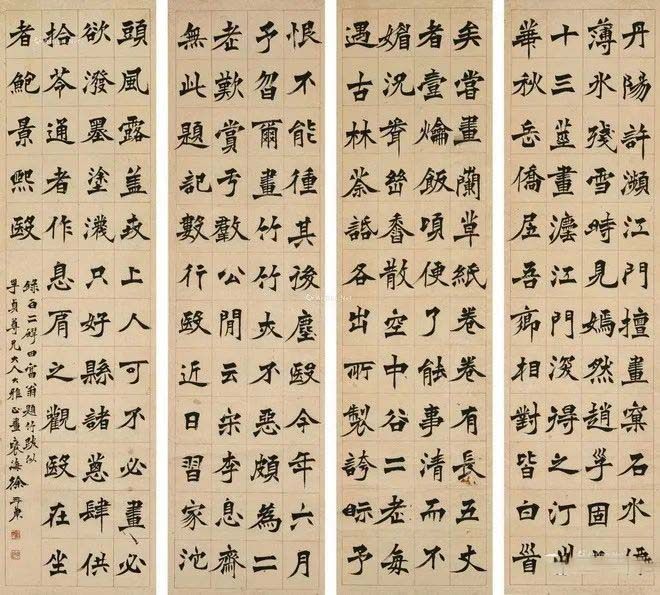 丹陽許瀕江門擅畫窠石水
薄冰殘雪時見嫣然趙固
十三畫江門深得之汀
華秋岳僑居吾鄉相對皆白首
矣嘗畫蘭草紙卷卷有長五丈
者壹爚飯頃便了能事清而不
媚況聳香散空中谷二老每
遇古林各出所製誇眎予
恨不能種其後塵毆今年六月
予畫竹竹亦不惡頗為二
老歎賞兮羣公閒云宋李息齋
無此題記數行毆近日習家池
頭風露蓋上人可不必畫必
欲潑墨塗濺只好縣諸蔥肆供
拾芩通者作息肩之觀毆在坐
者鮑景熙毆
二題竹跋似
尊兄大人大雅正徐